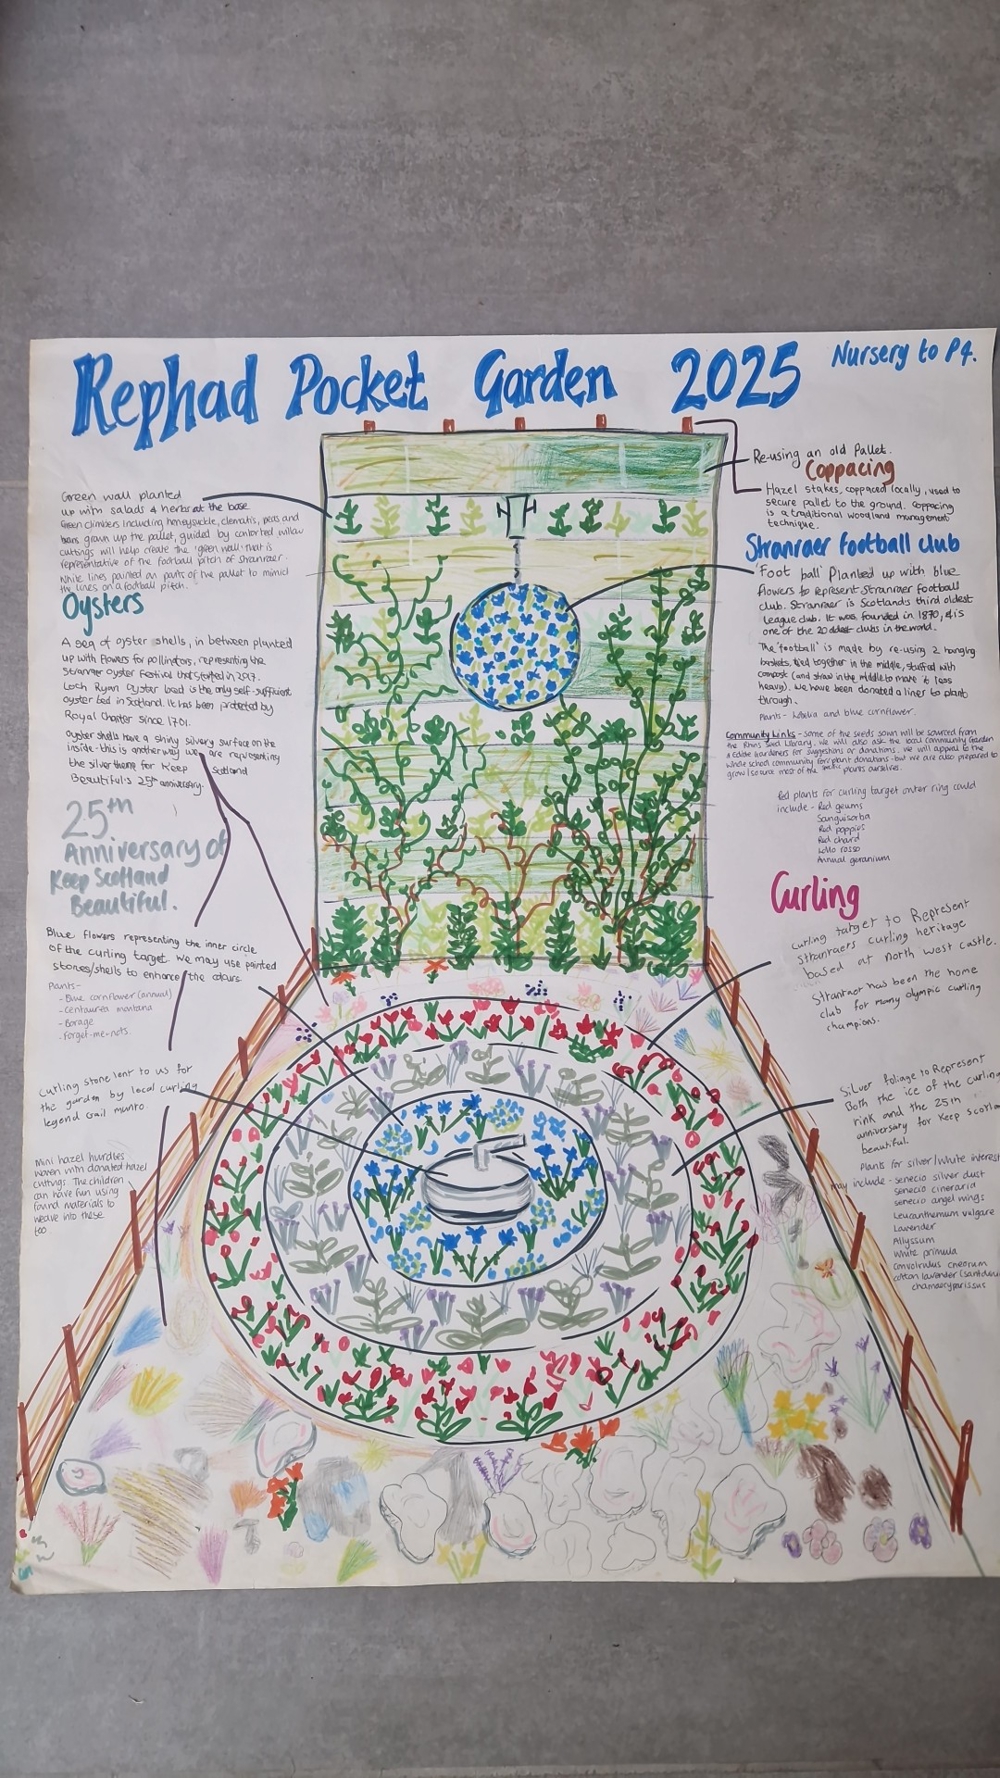 Rephad Pocket Garden 2025
Nursery to P4.
Green wall planted
up with salads & herbs at the base.
Green climbers including honeysuckle, clematis, peas and
beans grown up the pallet, guided by contorted willow
cuttings will help create the 'green wall' that is
representative of the football pitch of Stranraer.
White lines painted on parts of the pallet to mimic
the lines on a football pitch.
Oysters
A sea of oyster shells, in between planted
up with flowers for pollinators, representing the
Stranraer Oyster Festival that started in 2017.
Loch Ryan Oyster bed is the only self-sufficient
oyster bed in Scotland. It has been protected by
Royal Charter since 1701.
Oyster shells have a shiny silvery surface on the
inside - this is another way we are representing
the silver theme for Keep Scotland
Beautiful's 25th anniversary.
25th
Anniversary of
Keep Scotland
Beautiful.
Blue flowers representing the inner circle
of the curling target. We may use painted
stones/shells to enhance the colours.
Plants-
- Blue cornflower (annual)
- Centaurea montana
- Borage
- Forget-me-nots.
Curling stone lent to us for
the garden by local curling
legend Gail Munro
Mini hazel hurdles
woven with donated hazel
cuttings. The children
can have fun using
found materials to
weave into these
too.
Re-using an old Pallet.
Coppacing
Hazel stakes, coppaced locally, used to
secure pallet to the ground. Coppacing
is a traditional woodland management
technique.
Stranraer football club
'Foot ball' Planted up with blue
flowers to represent Stranraer football
club. Stranraer is Scotlands third oldest
league club. It was founded in 1870, & is
one of the 20 oldest clubs in the world.
The 'football' is made by re-using 2 hanging
baskets, tied together in the middle, stuffed with
compost (and straw in the middle to make it less
heavy). We have been donated a liner to plant
through.
Plants - Lobelia and blue cornflower.
Community Links - some of the seeds sown will be sourced from
the Rhins Seed Library. We will also ask the local Community Garden
& Edible Gardeners for suggestions or donations. We will appeal to the
whole school community for plant donations - but we are also prepared to
grow/source most of the plants ourselves.
Red plants for curling target outer ring could
include - Red geums
Sanguisorba
Red poppies
Red chard
Lollo rosso
Annual geranium
Curling
Curling target to Represent
Stranraers curling heritage
based at North West Castle.
Stranraer has been the home
club for many olympic curling
champions.
Silver foliage to Represent
Both the ice of the curling
rink and the 25th
anniversary for Keep Scotland
beautiful.
Plants for silver/white interest
may include - senecio silver dust
senecio cineraria
senecio angel wings
Leucanthemum vulgare
Lavender
Allyssum
White primula
Convolvulus cneorum
Cotton lavender (santolina
chamaecyparissus